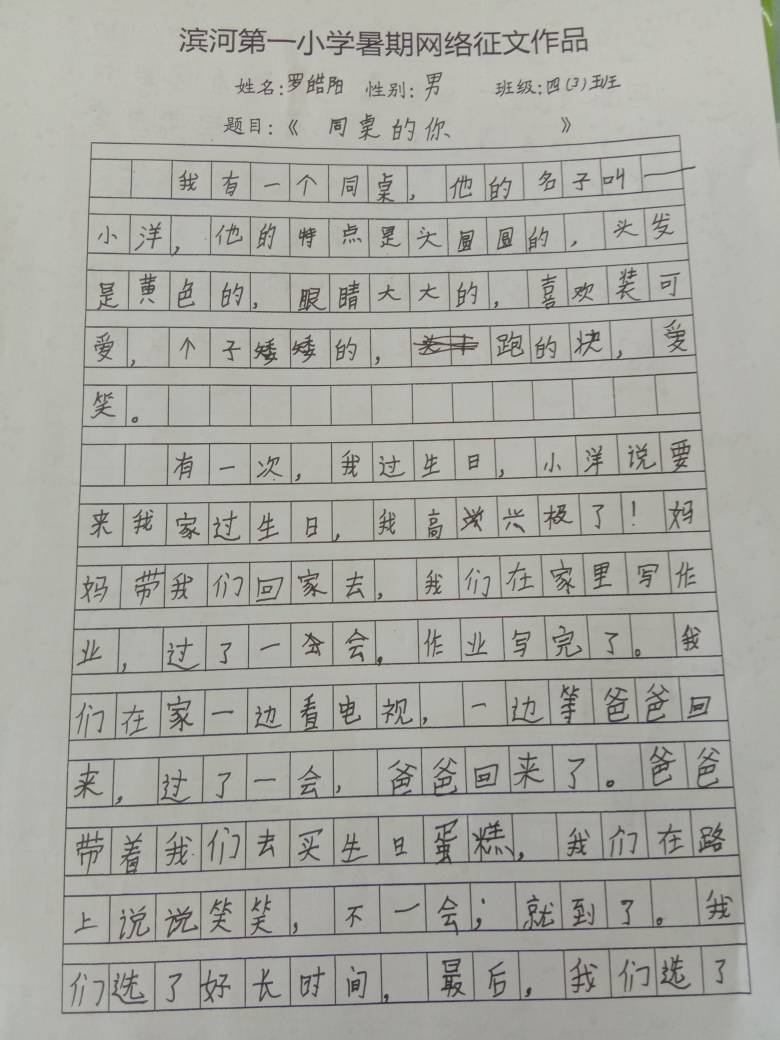 滨河第一小学暑期网络征文作品
姓名:罗皓阳 性别:男 班级:四(3)班
题目:《 同桌的你 》
我有一个同桌,他的名子叫——
小洋,他的特点是头圆圆的,头发
是黄色的,眼睛大大的,喜欢装可
爱,个子矮矮的,跑的快,爱
笑。
有一次,我过生日,小洋说要
来我家过生日,我高兴极了!妈
妈带我们回家去,我们在家里写作
业,过了一会,作业写完了。我
们在家一边看电视,一边等爸爸回
来,过了一会,爸爸回来了。爸爸
带着我们去买生日蛋糕,我们在路
上说说笑笑,不一会;就到了。我
们选了好长时间,最后,我们选了